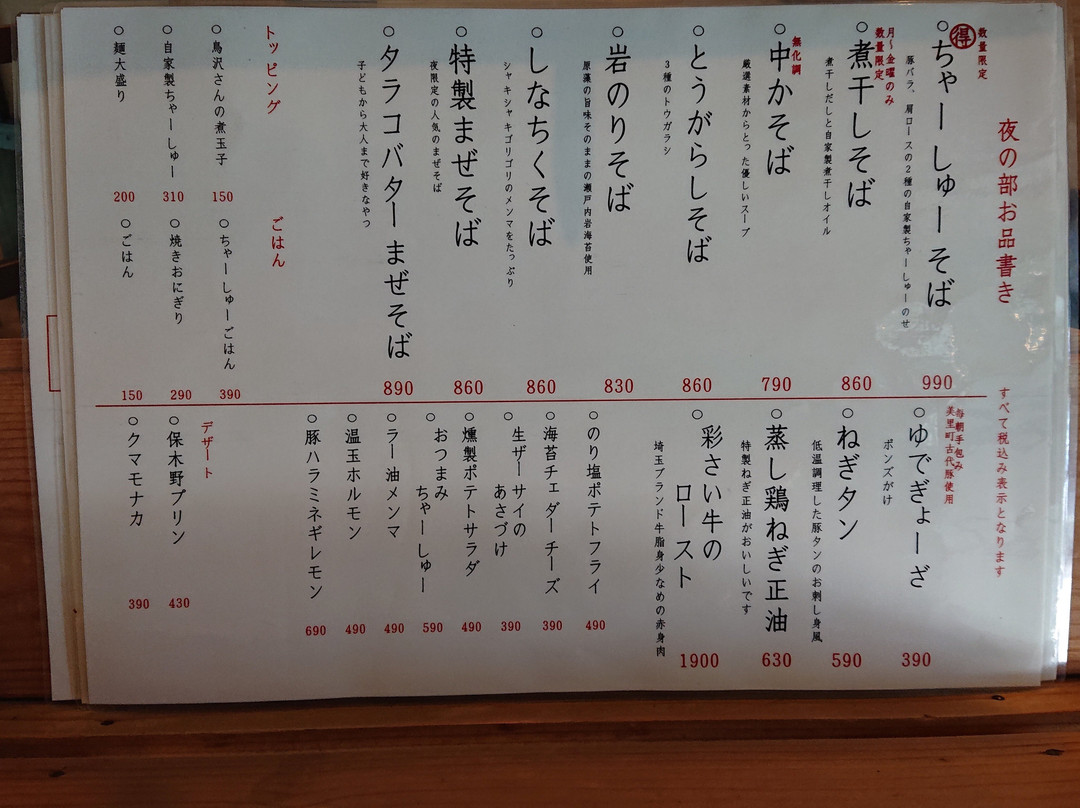 夜の部お品書き
すべて税込み表示となります
数量限定
得
○ちゃーしゅーそば
豚バラ、肩ロースの2種の自家製ちゃーしゅーのせ
990
月～金曜のみ
数量限定
○煮干しそば
煮干しだしと自家製煮干しオイル
860
無化調
○中かそば
厳選素材からとった優しいスープ
790
○とうがらしそば
3種のトウガラシ
860
○岩のりそば
原藻の旨味そのままの瀬戸内岩海苔使用
830
○しなちくそば
シャキシャキゴリゴリのメンマをたっぷり
860
○特製まぜそば
夜限定の人気のまぜそば
860
○タラコバターまぜそば
子どもから大人まで好きなやつ
890
トッピング
○鳥沢さんの煮玉子
150
○自家製ちゃーしゅー
310
○麺大盛り
200
ごはん
○ちゃーしゅーごはん
390
○焼きおにぎり
290
○ごはん
150
毎朝手包み
美里町古代豚使用
○ゆでぎょーざ
ポンズがけ
390
○ねぎタン
低温調理した豚タンのお刺し身風
590
○蒸し鶏ねぎ正油
特製ねぎ正油がおいしいです
630
○彩さい牛の
ロースト
埼玉ブランド牛脂身少なめの赤身肉
1900
○のり塩ポテトフライ
490
○海苔チェダーチーズ
390
○生ザーサイの
あさづけ
390
○燻製ポテトサラダ
490
○おつまみ
ちゃーしゅー
590
○ラー油メンマ
490
○温玉ホルモン
490
○豚ハラミネギレモン
690
デザート
○保木野プリン
430
○クマモナカ
390